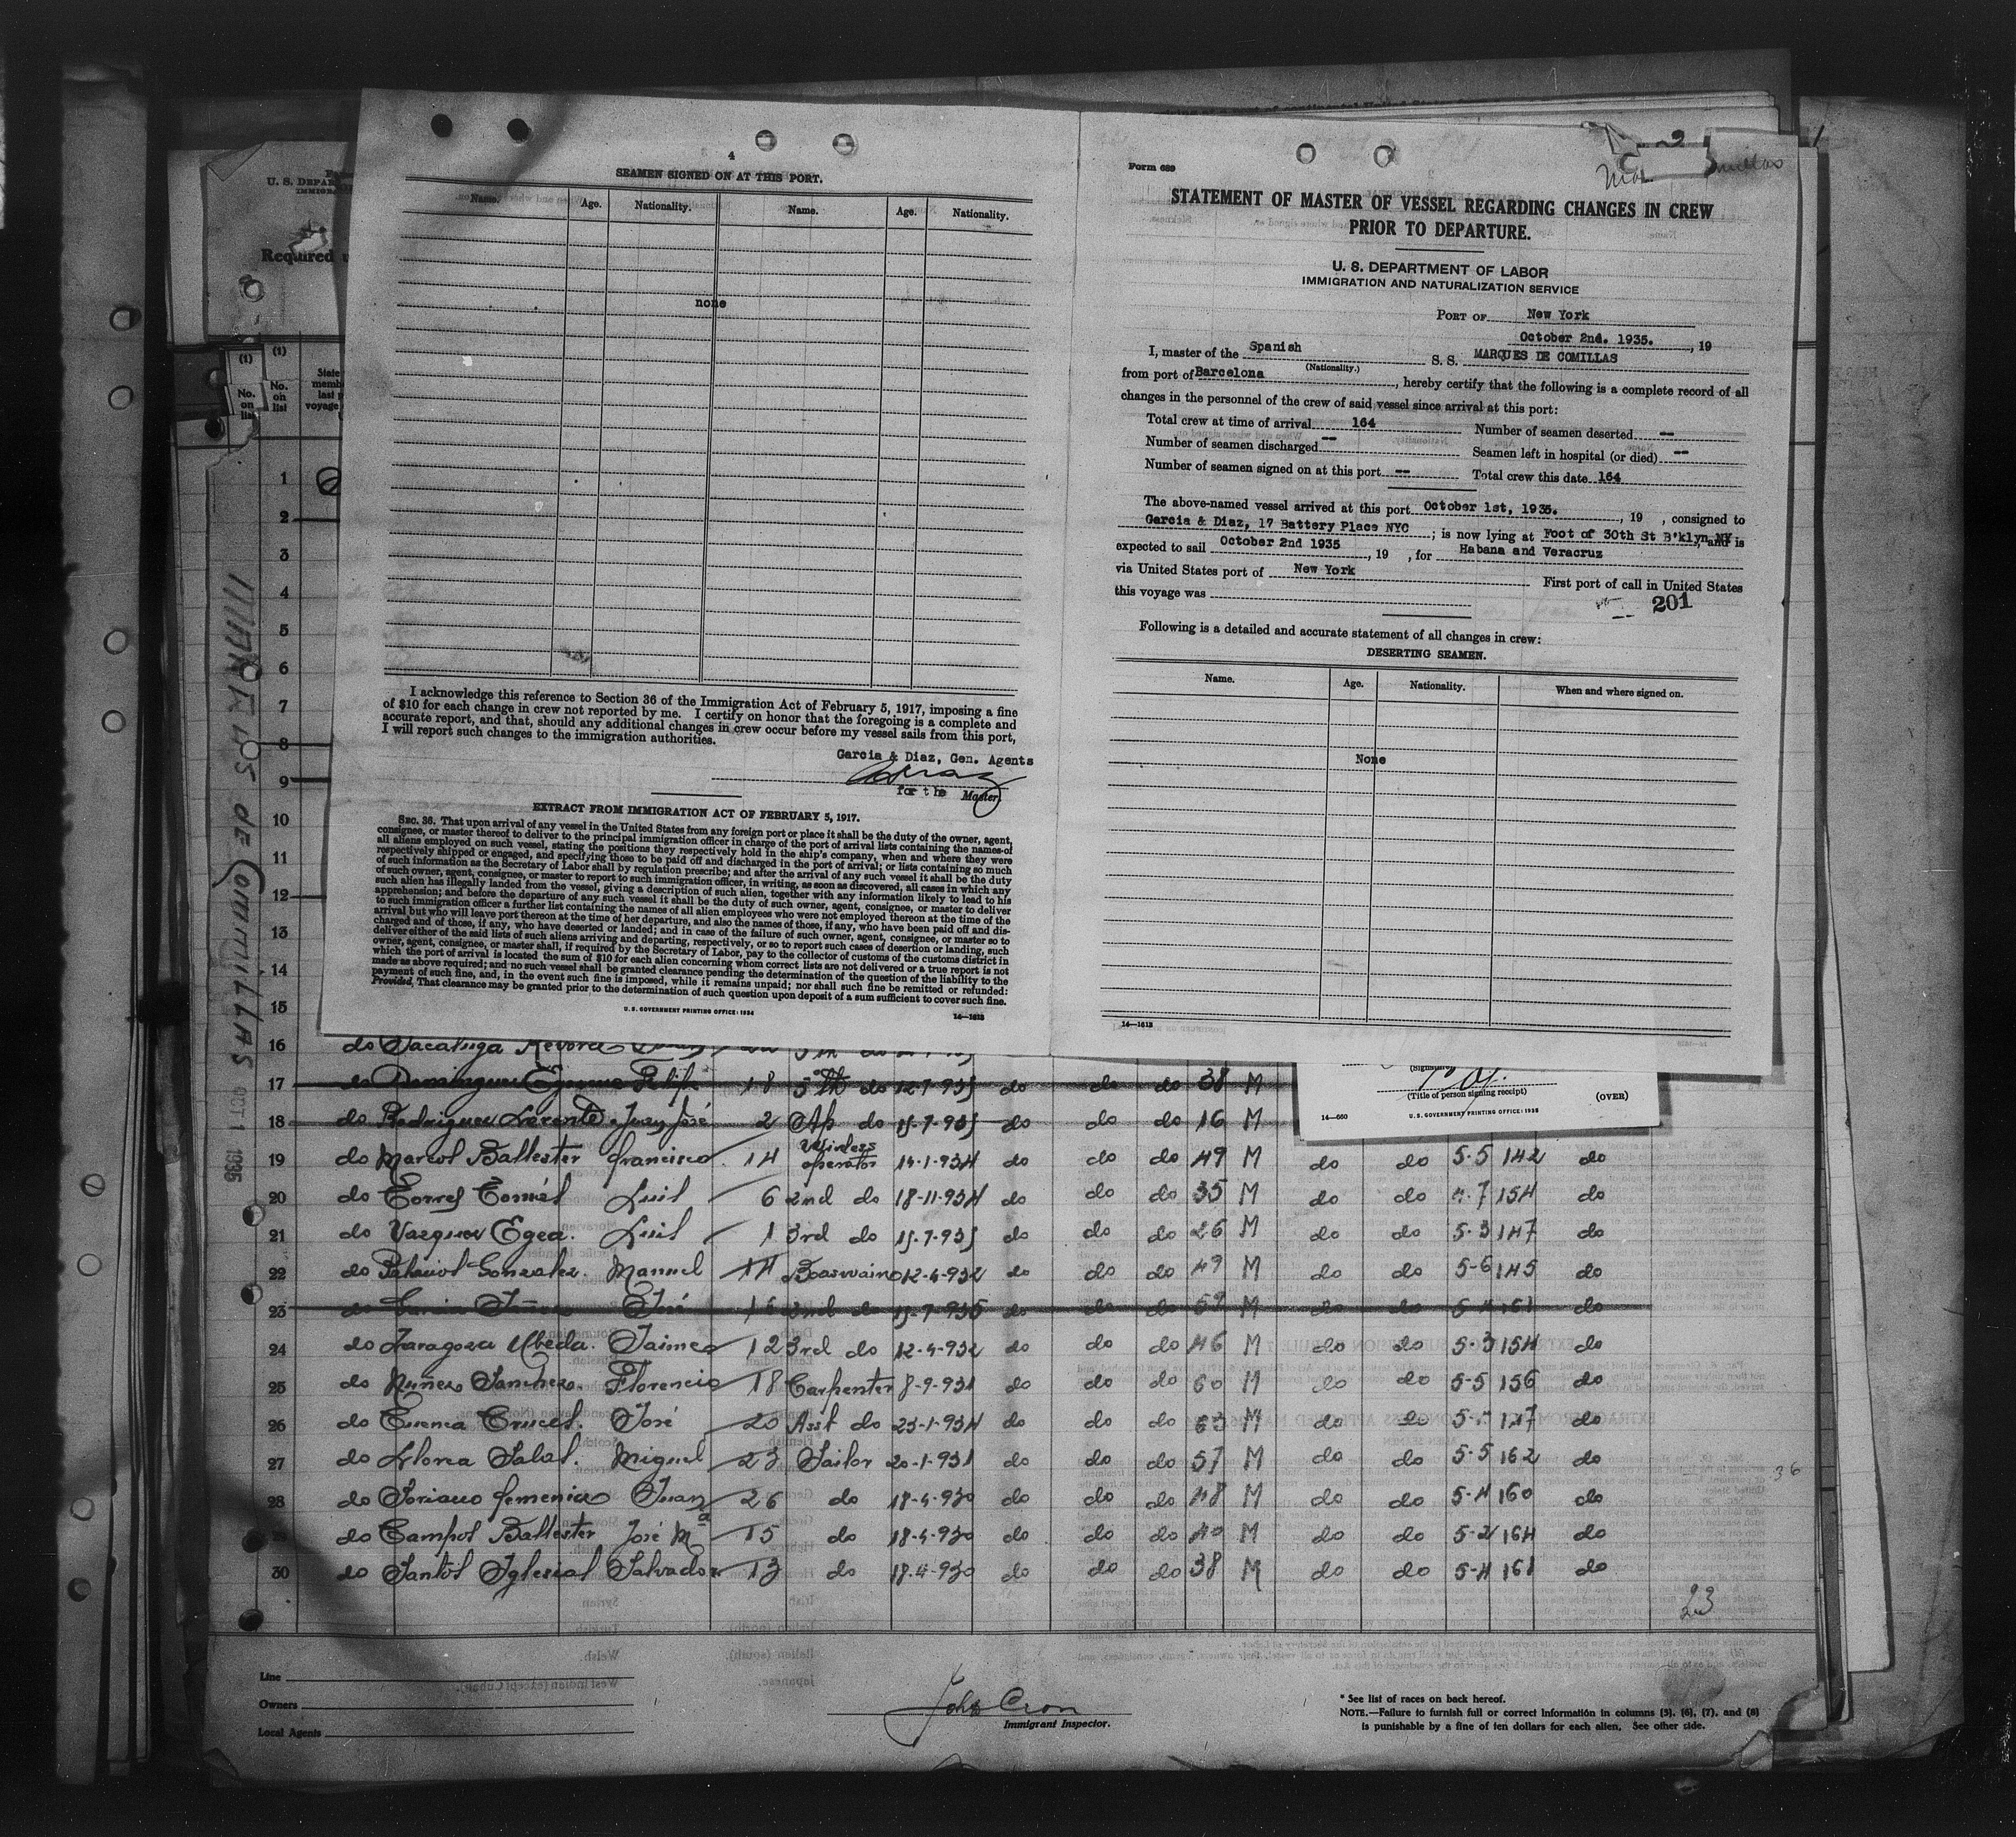 4
SEAMEN SIGNED ON AT THIS PORT.
Name. Age. Nationality. Name. Age. Nationality.
none
I acknowledge this reference to Section 36 of the Immigration Act of February 5, 1917, imposing a fine
of $10 for each change in crew not reported by me. I certify on honor that the foregoing is a complete and
accurate report, and that, should any additional changes in crew occur before my vessel sails from this port,
I will report such changes to the immigration authorities.
Garcia & Diaz, Gen. Agents
for the Master
EXTRACT FROM IMMIGRATION ACT OF FEBRUARY 5, 1917.
SEC. 36. That upon arrival of any vessel in the United States from any foreign port or place it shall be the duty of the owner, agent,
consignee, or master thereof to deliver to the principal immigration officer in charge of the port of arrival lists containing the names of
all aliens employed on such vessel, stating the positions they respectively hold in the ship's company, when and where they were
respectively shipped or engaged, and specifying those to be paid off and discharged in the port of arrival; or lists containing so much
of such information as the Secretary of Labor shall by regulation prescribe; and after the arrival of any such vessel it shall be the duty
of such owner, agent, consignee, or master to report to such immigration officer, in writing, as soon as discovered, all cases in which any
such alien has illegally landed from the vessel, giving a description of such alien, together with any information likely to lead to his
apprehension; and before the departure of any such vessel it shall be the duty of such owner, agent, consignee, or master to deliver
to such immigration officer a further list containing the names of all alien employees who were not employed thereon at the time of the
arrival but who will leave port thereon at the time of her departure, and also the names of those, if any, who have been paid off and dis-
charged and of those, if any, who have deserted or landed; and in case of the failure of such owner, agent, consignee, or master so to
deliver either of the said lists of such aliens arriving and departing, respectively, or so to report such cases of desertion or landing, such
owner, agent, consignee, or master shall, if required by the Secretary of Labor, pay to the collector of customs of the customs district in
which the port of arrival is located the sum of $10 for each alien concerning whom correct lists are not delivered or a true report is not
made as above required; and no such vessel shall be granted clearance pending the determination of the question of the liability to the
payment of such fine, and, in the event such fine is imposed, while it remains unpaid; nor shall such fine be remitted or refunded:
Provided, That clearance may be granted prior to the determination of such question upon deposit of a sum sufficient to cover such fine.
U. S. GOVERNMENT PRINTING OFFICE: 1934 14—1613
Form 689
STATEMENT OF MASTER OF VESSEL REGARDING CHANGES IN CREW
PRIOR TO DEPARTURE.
U. S. DEPARTMENT OF LABOR
IMMIGRATION AND NATURALIZATION SERVICE
PORT OF New York
October 2nd. 1935. , 19
I, master of the Spanish S. S. MARQUES DE COMILLAS
(Nationality.)
from port of Barcelona , hereby certify that the following is a complete record of all
changes in the personnel of the crew of said vessel since arrival at this port:
Total crew at time of arrival 164 Number of seamen deserted --
Number of seamen discharged -- Seamen left in hospital (or died) --
Number of seamen signed on at this port -- Total crew this date 164
The above-named vessel arrived at this port October 1st, 1935. , 19 , consigned to
Garcia & Diaz, 17 Battery Place NYC ; is now lying at Foot of 30th St B'klyn, NY and is
expected to sail October 2nd 1935 , 19 , for Habana and Veracruz
via United States port of New York First port of call in United States
this voyage was
201
Following is a detailed and accurate statement of all changes in crew:
DESERTING SEAMEN.
Name. Age. Nationality. When and where signed on.
None
14—1613
U. S. DEPAR
Required
(1) (1)
No. on list No. on list
MARQUES de COMMILLAS OCT 1 1935
1
2
3
4
5
6
7
8
9
10
11
12
13
14
15
16 do
17 do Felipe 18 5th do 12-7-935 do do do 38 M
18 do Rodriguez Lorente Juan José 2 Ap do 15-7-935 do do do 16 M
19 do Marcos Ballester Francisco 14 Wireless operator 14-1-934 do do do 49 M do do 5-5 142 do
20 do Torres Tomás Luis 6 2nd do 18-11-934 do do do 35 M do do 154 do
21 do Vazquez Egea. Luis 1 3rd do 15-7-935 do do do 26 M do do 5-3 147 do
22 do Palacios Gonzalez. Manuel 14 Boatswain 12-4-932 do do do 49 M do do 5-6 145 do
23 do Garcia José 16 2nd do 15-7-935 do do do 59 M do do do
24 do Zaragoza Ubeda. Jaime 12 3rd do 12-4-932 do do do 46 M do do 5-3 154 do
25 do Nuñez Sanchez. Florencio 18 Carpenter 8-9-931 do do do 60 M do do 5-5 156 do
26 do Cuenca Cruces. José 20 Asst do 23-1-934 do do do 63 M do do 147 do
27 do Llorca Salas. Miguel 23 Sailor 20-1-931 do do do 57 M do do 5-5 162 do
28 do Soriano Femenia Juan 26 do 18-4-930 do do do 48 M do do 5-4 160 do
29 do Campos Ballester José Mª 15 do 18-4-930 do do do 40 M do do 5-2 164 do
30 do Santos Iglesias Salvador 13 do 18-4-930 do do do 38 M do do 5-4 161 do
36
23
(Title of person signing receipt)
(OVER)
14—660 U. S. GOVERNMENT PRINTING OFFICE: 1935
Line
Owners
Local Agents
John Cron
Immigrant Inspector.
* See list of races on back hereof.
NOTE.—Failure to furnish full or correct information in columns (3), (6), (7), and (8)
is punishable by a fine of ten dollars for each alien. See other side.